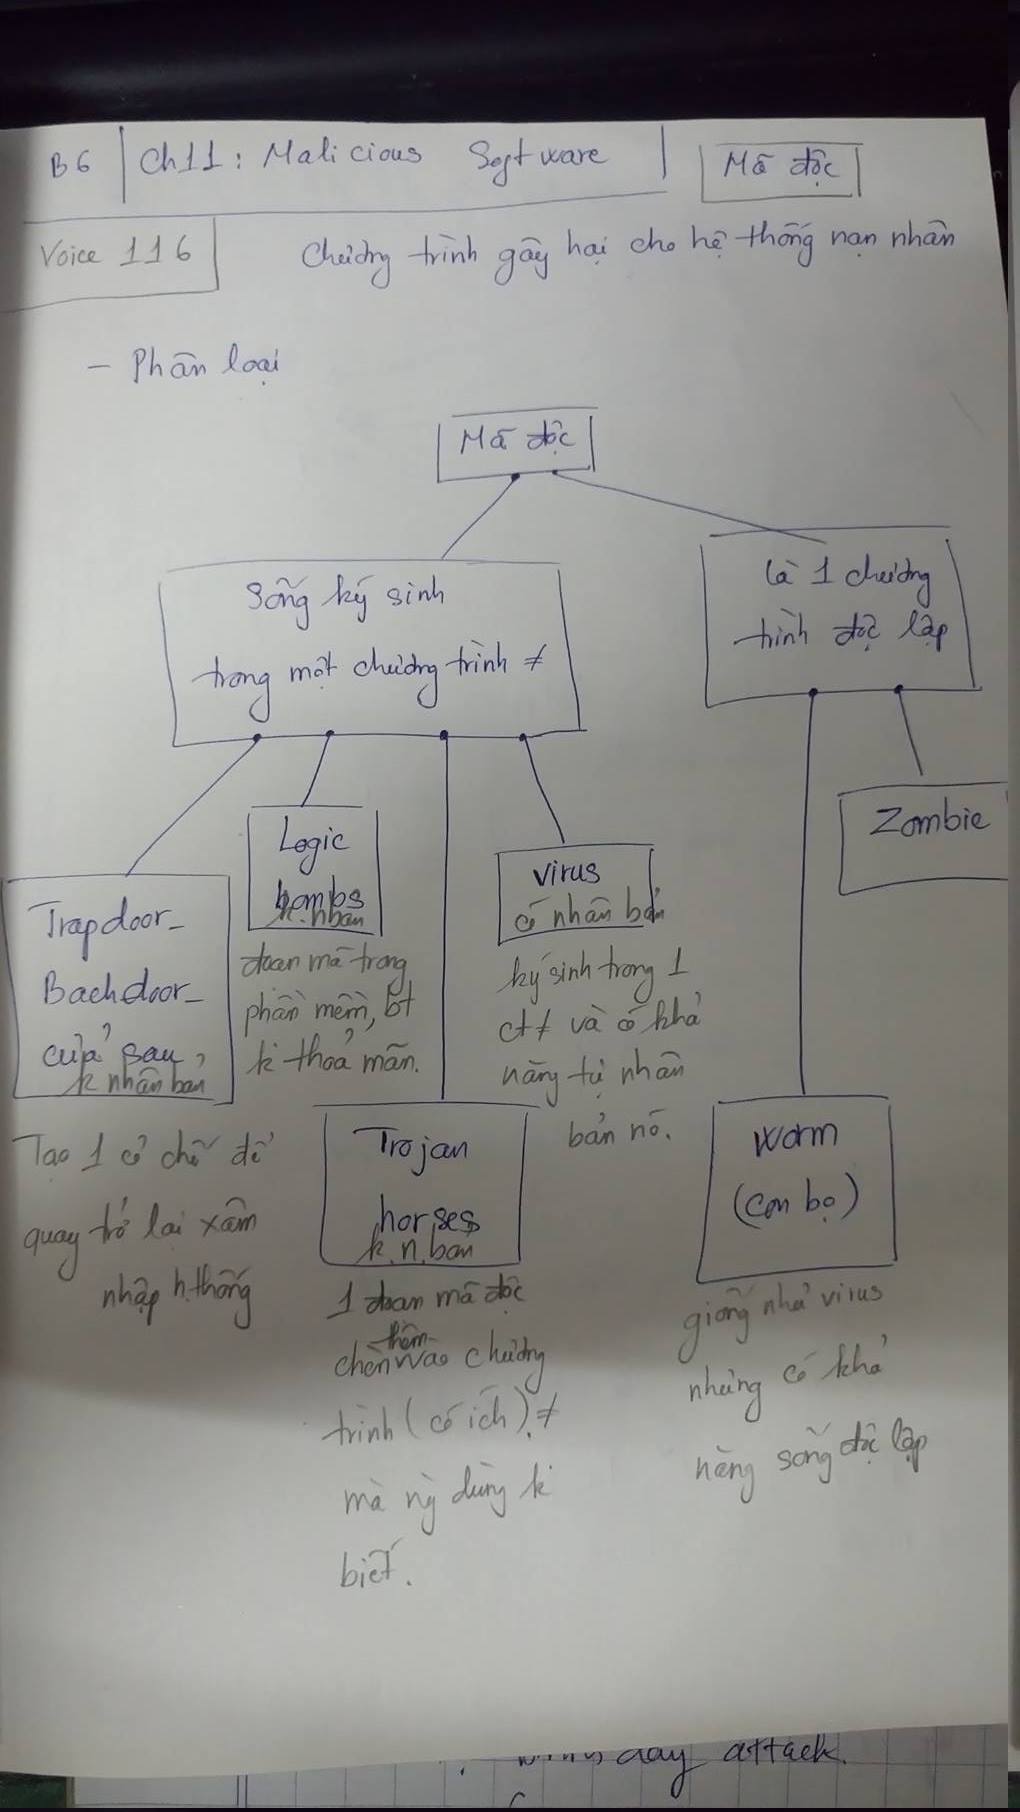 B6 Ch11: Malicious Software Mã độc
Voice 116
Chương trình gây hại cho hệ thống nạn nhân
- Phân loại
Mã độc
Sống ký sinh
trong một chương trình ≠
là 1 chương
trình độc lập
Trapdoor_
Bachdoor_
cửa sau,
k nhân bản
Tạo 1 cơ chế để
quay trở lại xâm
nhập h.thống
Logic
bombs
k. nhân
đoạn mã trong
phần mềm, bt
k thoả mãn.
Trojan
horses
k. n. bản
1 đoạn mã độc
thêm
chèn vào chương
trình (có ích) ≠
mà ng dùng k
biết.
virus
có nhân bản
ký sinh trong 1
ct ≠ và có khả
năng tự nhân
bản nó.
Worm
(con bọ)
giống như virus
nhưng có khả
năng sống độc lập
Zombie
day attack.